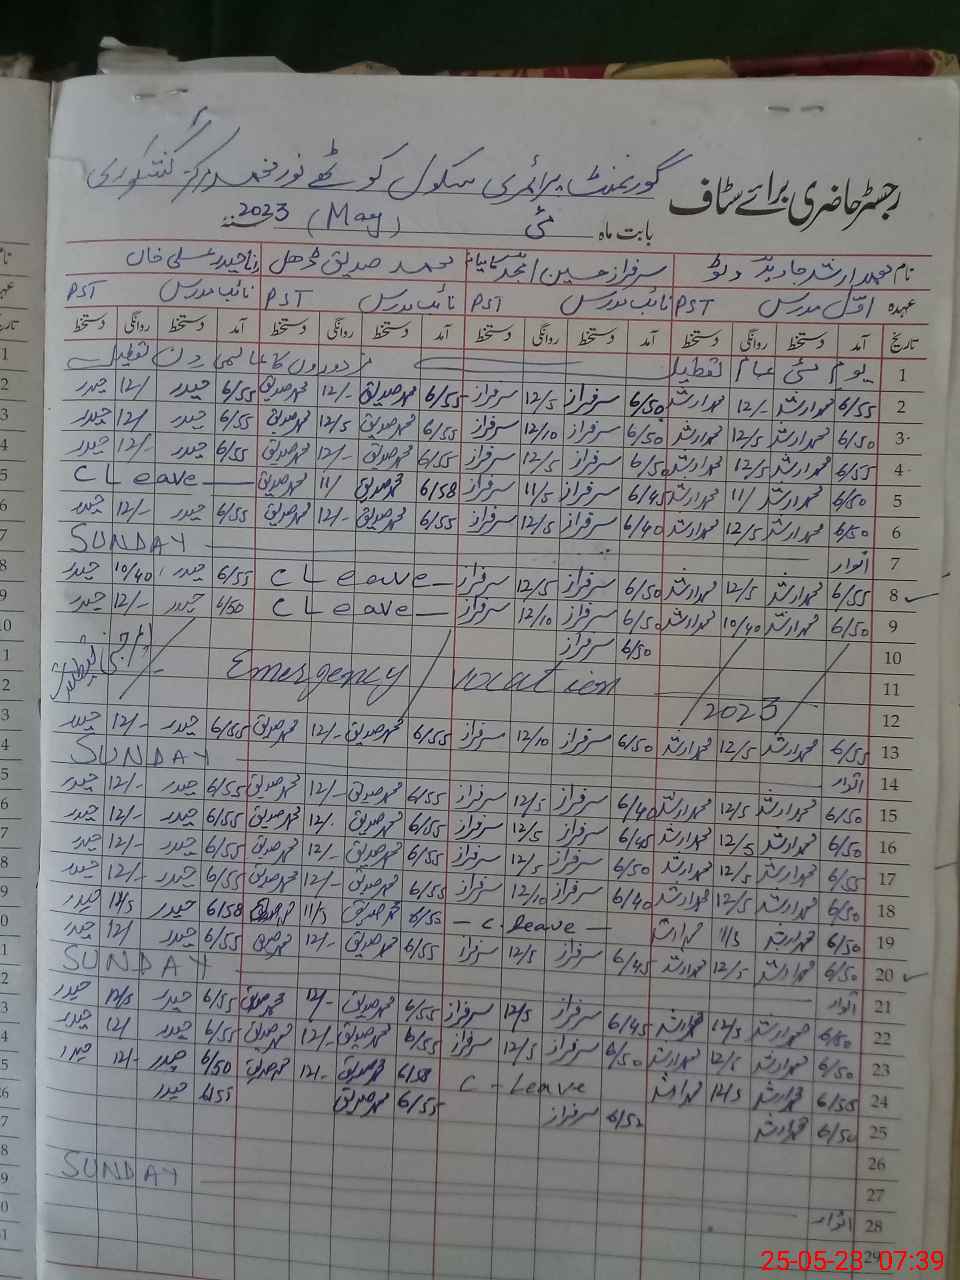 رجسٹر حاضری برائے سٹاف گورنمنٹ پرائمری سکول کوٹھے نور محمد
بابت ماہ مئی (May) 2023
نام محمد ارشد جاوید سرفراز حسین محمد صدیق حیدر علی خاں
عہدہ اول مدرس PST نائب مدرس PST نائب مدرس PST نائب مدرس PST
تاریخ آمد دستخط روانگی دستخط آمد دستخط روانگی دستخط آمد دستخط روانگی دستخط آمد دستخط روانگی دستخط
1 یوم مئی عام تعطیل مزدوروں کا عالمی دن تعطیل
2 6/55 محمد ارشد 12/- محمد ارشد 6/50 سرفراز 12/5 سرفراز 6/55 محمد صدیق 12/- محمد صدیق 6/55 حیدر 12/- حیدر
3 6/50 محمد ارشد 12/5 محمد ارشد 6/50 سرفراز 12/10 سرفراز 6/55 محمد صدیق 12/5 محمد صدیق 6/55 حیدر 12/ حیدر
4 6/55 محمد ارشد 12/5 محمد ارشد 6/50 سرفراز 12/5 سرفراز 6/55 محمد صدیق 12/- محمد صدیق 6/55 حیدر 12/- حیدر
5 6/50 محمد ارشد 11/ محمد ارشد 6/45 سرفراز 11/5 سرفراز 6/58 محمد صدیق 11/ محمد صدیق C Leave
6 6/50 محمد ارشد 12/5 محمد ارشد 6/40 سرفراز 12/5 سرفراز 6/55 محمد صدیق 12/- محمد صدیق 6/55 حیدر 12/- حیدر
7 اتوار SUNDAY
8 6/55 محمد ارشد 12/5 محمد ارشد 6/50 سرفراز 12/5 سرفراز C Leave 6/55 حیدر 10/40 حیدر
9 6/50 محمد ارشد 10/40 محمد ارشد 6/50 سرفراز 12/10 سرفراز C Leave 6/50 حیدر 12/- حیدر
10 6/50 سرفراز
11 Emergency vocation
12 2023
13 6/55 محمد ارشد 12/5 محمد ارشد 6/50 سرفراز 12/10 سرفراز 6/55 محمد صدیق 12/- محمد صدیق 6/55 حیدر 12/- حیدر
14 اتوار SUNDAY
15 6/50 محمد ارشد 12/5 محمد ارشد 6/40 سرفراز 12/5 سرفراز 6/55 محمد صدیق 12/- محمد صدیق 6/55 حیدر 12/- حیدر
16 6/50 محمد ارشد 12/5 محمد ارشد 6/45 سرفراز 12/5 سرفراز 6/55 محمد صدیق 12/. محمد صدیق 6/55 حیدر 12/- حیدر
17 6/55 محمد ارشد 12/5 محمد ارشد 6/50 سرفراز 12/5 سرفراز 6/55 محمد صدیق 12/- محمد صدیق 6/55 حیدر 12/- حیدر
18 6/50 محمد ارشد 12/5 محمد ارشد 6/40 سرفراز 12/10 سرفراز 6/55 محمد صدیق 12/- محمد صدیق 6/55 حیدر 12/- حیدر
19 6/50 محمد ارشد 11/5 محمد ارشد C. leave 6/55 محمد صدیق 11/5 محمد صدیق 6/58 حیدر حیدر
20 6/50 محمد ارشد 12/5 محمد ارشد 6/45 سرفراز 12/5 سرفراز 6/55 محمد صدیق 12/- محمد صدیق 6/55 حیدر 12/ حیدر
21 اتوار SUNDAY
22 6/50 محمد ارشد 12/5 محمد ارشد 6/45 سرفراز 12/5 سرفراز 6/55 محمد صدیق 12/- محمد صدیق 6/55 حیدر 12/5 حیدر
23 6/50 محمد ارشد 12/5 محمد ارشد 6/50 سرفراز 12/5 سرفراز 6/55 محمد صدیق 12/- محمد صدیق 6/55 حیدر 12/ حیدر
24 6/55 محمد ارشد 12/5 محمد ارشد C - Leave 6/58 محمد صدیق 12/- محمد صدیق 6/50 حیدر 12/- حیدر
25 6/50 محمد ارشد 6/52 سرفراز 6/55 محمد صدیق 6/55 حیدر
26
27
28 اتوار SUNDAY
29
25-05-23 07:39